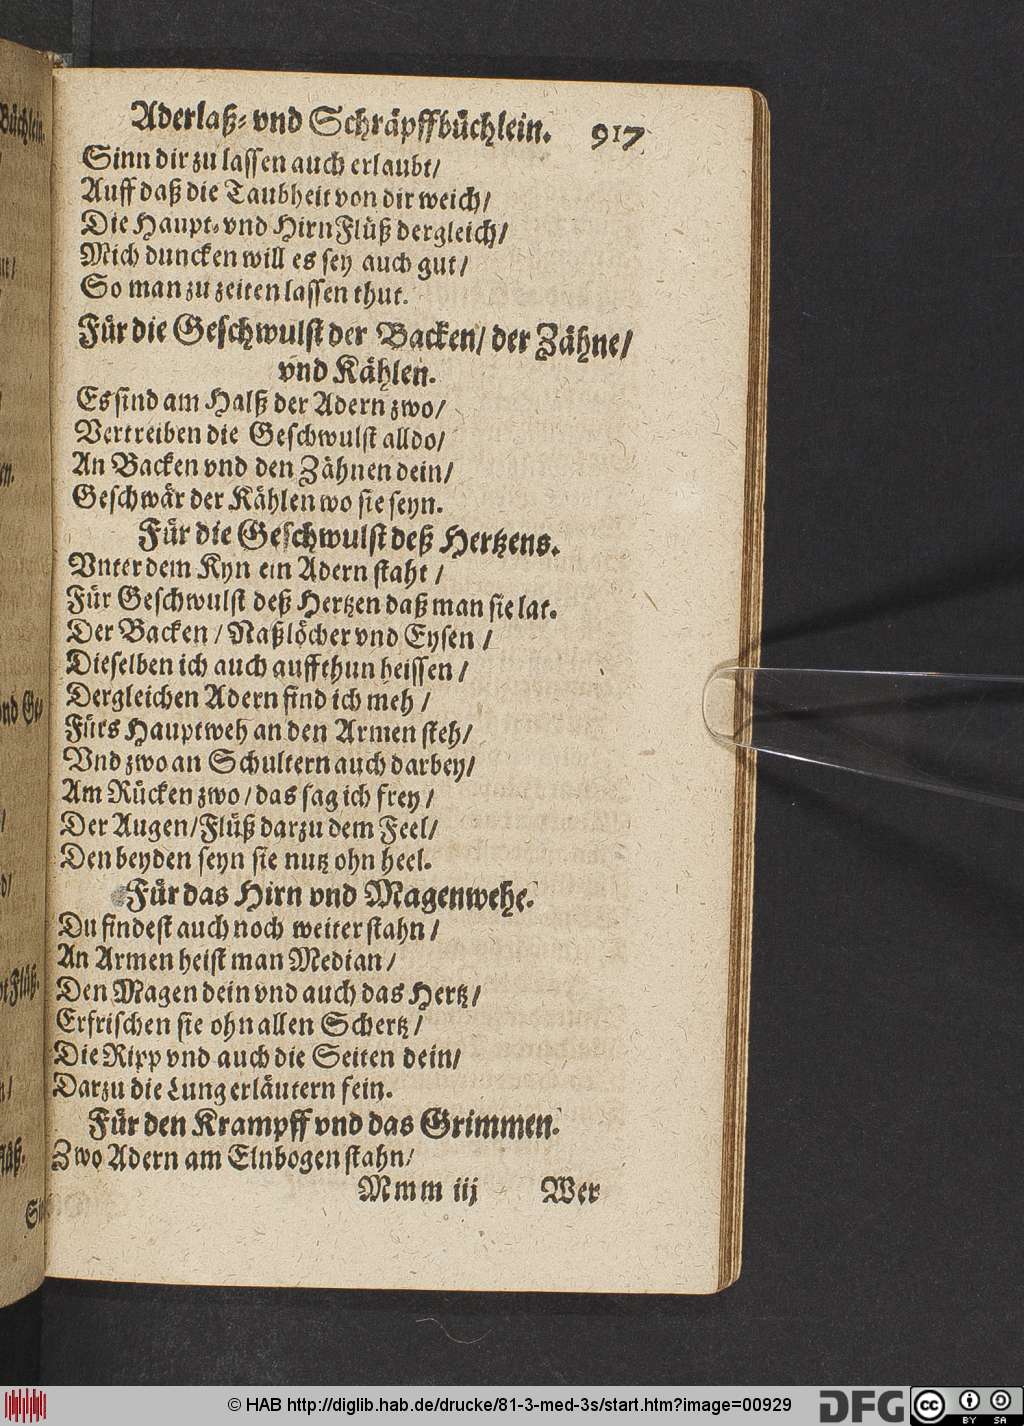 Aderlaß- vnd Schräpffbüchlein. 917
Sinn dir zu lassen auch erlaubt/
Auff daß die Taubheit von dir weich/
Die Haupt- vnd Hirn Flüß dergleich/
Mich duncken will es sey auch gut/
So man zu zeiten lassen thut.
Für die Geschwulst der Backen/ der Zähne/
vnd Kählen.
Es sind am Halß der Adern zwo/
Vertreiben die Geschwulst alldo/
An Backen vnd den Zähnen dein/
Geschwär der Kählen wo sie seyn.
Für die Geschwulst deß Hertzens.
Vnter dem Kyn ein Adern staht/
Für Geschwulst deß Hertzen daß man sie lat.
Der Backen/ Naßlöcher vnd Eysen/
Dieselben ich auch auffthun heissen/
Dergleichen Adern find ich meh/
Fürs Hauptweh an den Armen steh/
Vnd zwo an Schultern auch darbey/
Am Rücken zwo/ das sag ich frey/
Der Augen/ Flüß darzu dem Feel/
Den beyden seyn sie nutz ohn heel.
Für das Hirn vnd Magenwehe.
Du findest auch noch weiter stahn/
An Armen heist man Median/
Den Magen dein vnd auch das Hertz/
Erfrischen sie ohn allen Schertz/
Die Ripp vnd auch die Seiten dein/
Darzu die Lung erläutern fein.
Für den Krampff vnd das Grimmen.
Zwo Adern am Elnbogen stahn/
Mmm iij Wer
© HAB http://diglib.hab.de/drucke/81-3-med-3s/start.htm?image=00929
DFG
cc BY SA